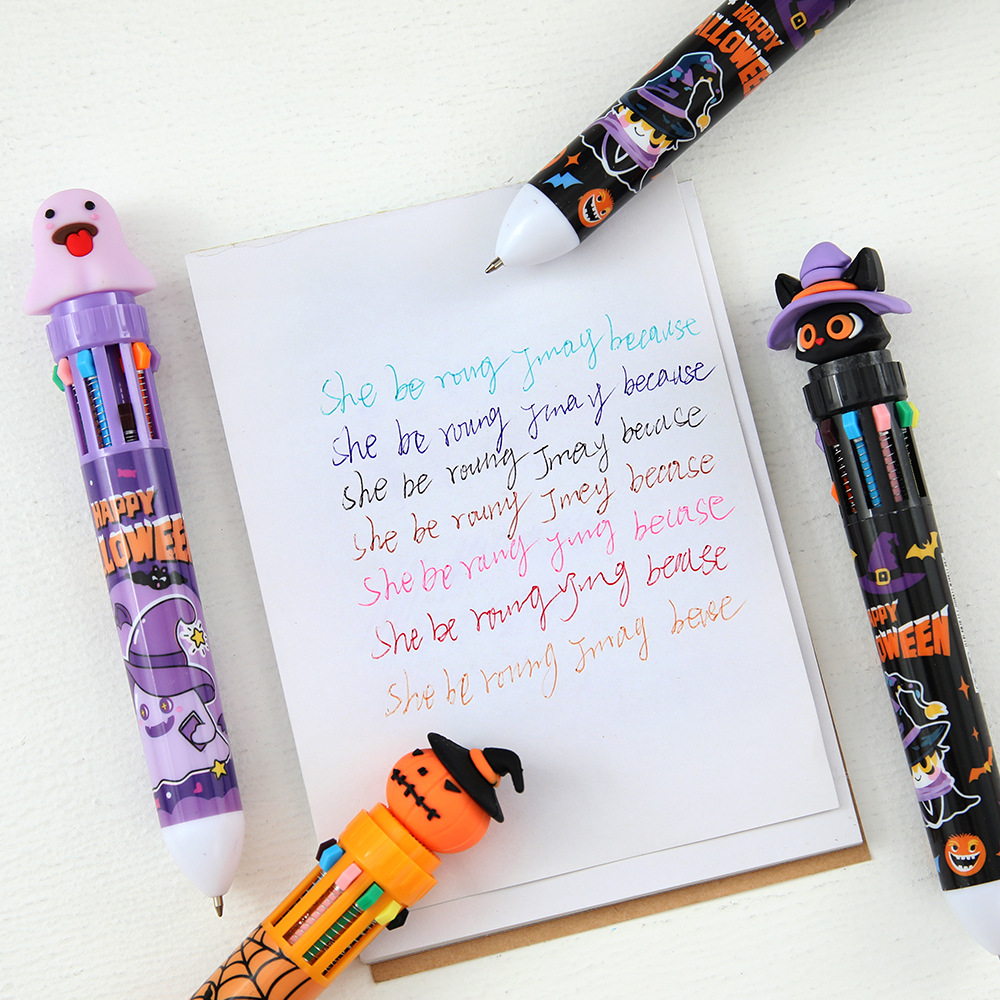 HAPPY
HALLOWEEN
She be roung Jmay because
She be roung Jmay because
She be roung Jmay becuase
She be rouny Jmey becaise
She be rang ying becaise
She be roung ying becaise
She be roung Jmay beause
HAPPY
LLOWEE
APPY
OWEEN